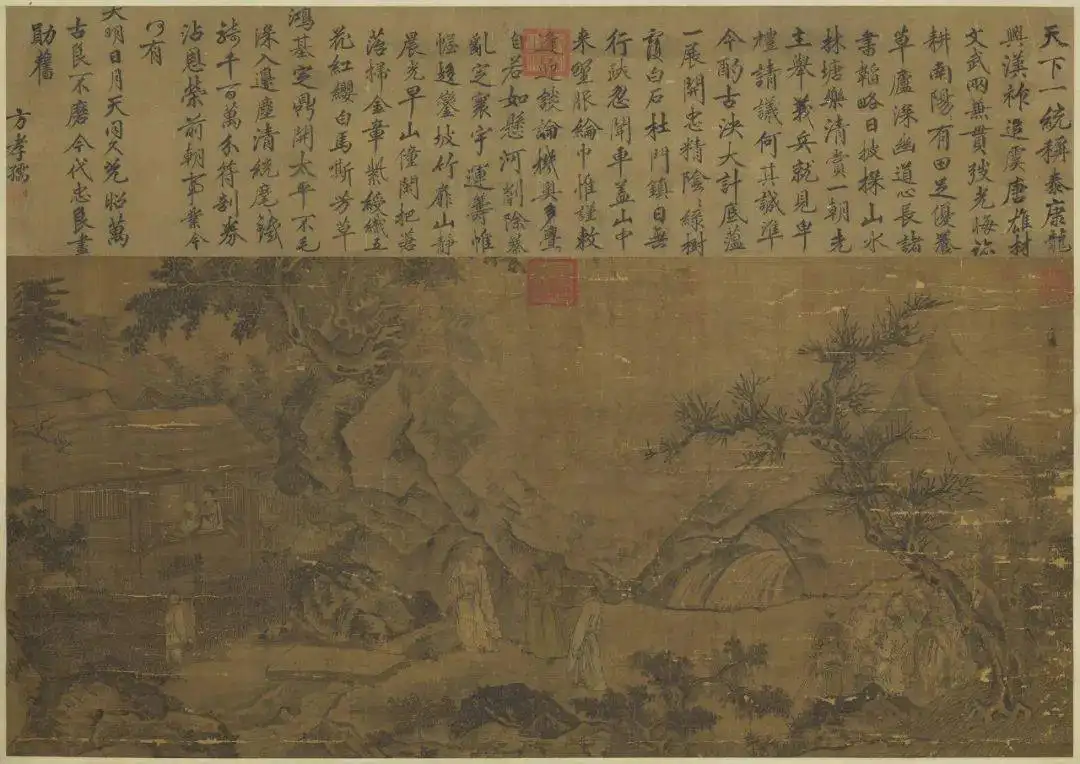 天下一統稱泰康龍
興漢祚追虞唐雄材
文武兩無貫弢光悔跡
耕南陽有田足優養
草廬深幽道心長諸
書韜略日披探山水
林塘樂清賞一朝先
主舉義兵就見卑
禮請議何其誠準
今酌古決大計底蘊
一展開忠精陰〻綠樹
覆白石杜門鎮日無
行跡忽聞車蓋山中
来野服綸巾惟謹敕
逢迎談論機奧多
自若如懸河削除
亂定寰宇運籌惟
幄趍鑾坡竹扉山靜
晨光早山僮開把落
落掃金章紫綬織五
花紅纓白馬嘶芳草
鴻基定鼎開太平不毛
深入邊塵清統麾鐵
騎千百萬分符剖券
沾恩榮前朝事業今
何有
大明日月天同久光昭萬
古良不磨今代忠良畫
勛舊
方孝孺